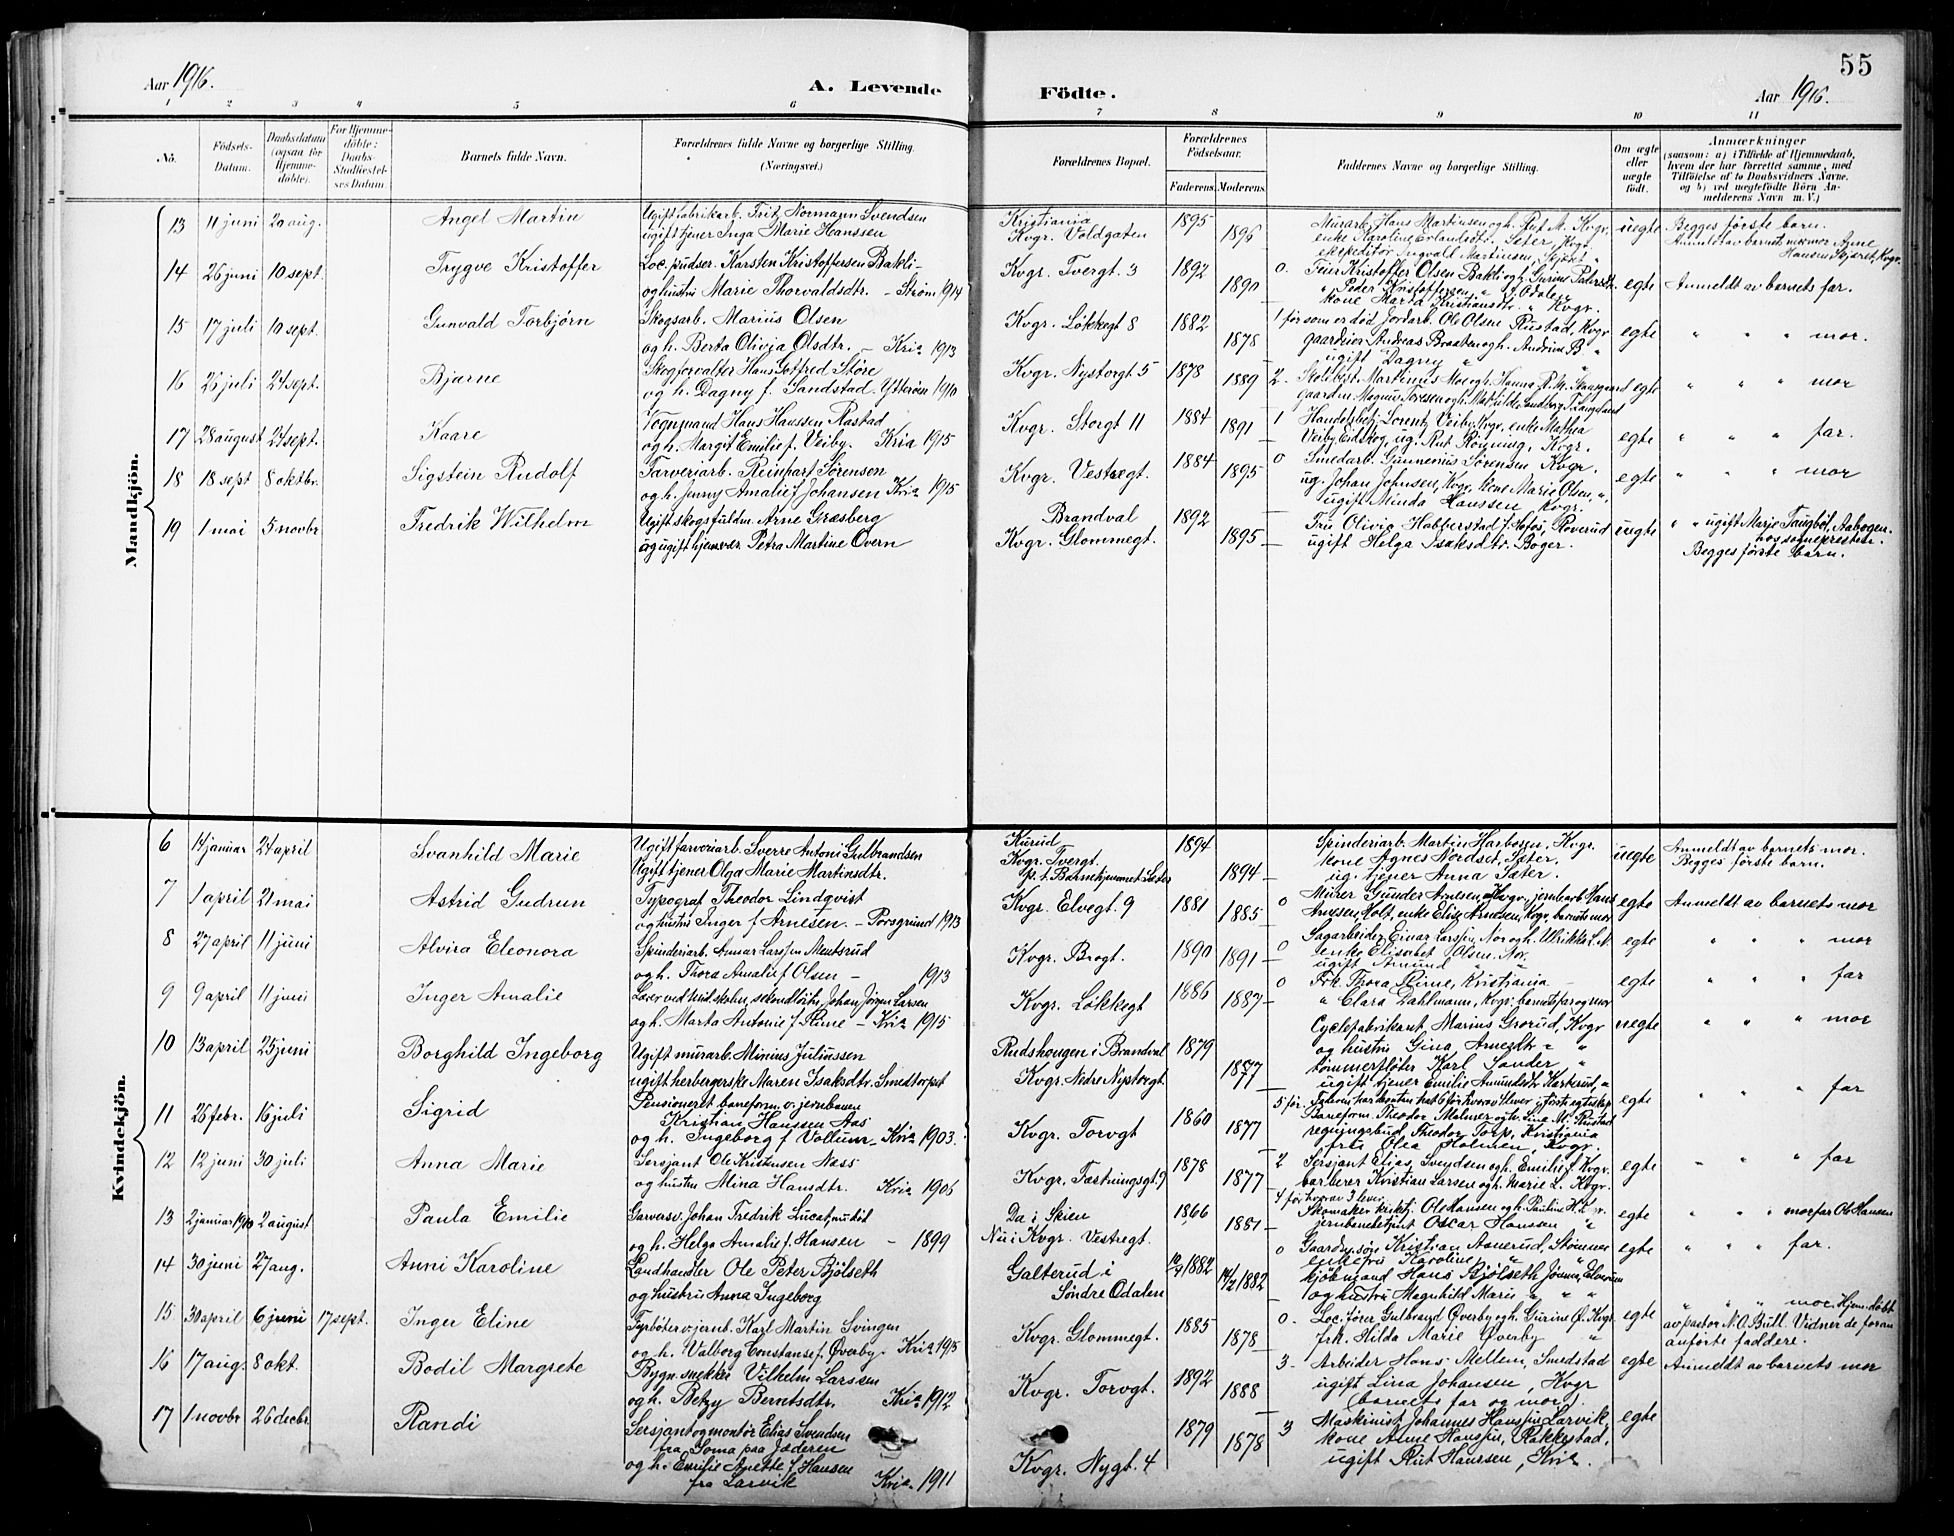 55
Aar 1916.
A. Levende
Födte.
Aar 1916.
1 2 3 4 5 6 7 8 9 10 11
No.
Födsels-Datum.
Daabsdatum (ogsaa for Hjemme-döbte).
For Hjemme-döbte: Daabs-Stadfæstel-ses Datum.
Barnets fulde Navn.
Forældrenes fulde Navne og borgerlige Stilling. (Næringsvei.)
Forældrenes Bopæl.
Forældrenes Födselsaar.
Faderens. Moderens.
Faddernes Navne og borgerlige Stilling.
Om ægte eller uægte födt.
Anmærkninger (saasom: a) i Tilfælde af Hjemmedaab, hvem der har forrettet samme, med Tilföielse af to Daabsvidners Navne. og b) ved uægtefödte Börn An-melderens Navn m. V.)
Mandkjön.
13 11 juni 20 aug. Angel Martin
Ugift fabrikarb. Fritz Normann Svendsen
ugift tjener Inga Marie Hanssen
Kristiania
Kvgr. Voldgaten
1895 1896
Murarb. Hans Martinsen og h. Rut M. Kvgr.
uegte
Begges første barn.
14 26 juni 10 sept. Trygve Kristoffer
Loc. pudser. Karsten Kristoffersen Bakli
og hustru Marie Thorvaldsdtr. - Strøm 1914
Kvgr. Tvergt. 3
1892 1890
0. Feier Kristoffer Olsen Bakli og h. Gurine Pedersdtr.
kone Marta Kristiansdtr. " Kvgr.
egte
Anmeldt av barnets far.
15 17 juli 10 sept. Gunvald Torbjørn
Skogsarb. Marius Olsen
og h. Berta Olivia Olsdtr. - Kria 1913
Kvgr. Løkkegt 8
1882 1878
1 før som er død Jordarb. Ole Olsen Rustad, Kvgr
gaardeier Andreas Braaten og h. Andrine B. "
ugift Dagny "
egte
" " " mor.
16 26 juli 24 sept. Bjarne
Skogforvalter Hans Gotfred Støre
og h. Dagny f. Sandstad. Ytterøen 1910
Kvgr. Nystorgt 5
1878 1889
2 egte
" " " mor
17 28 august 24 sept. Kaare
Vognmand Hans Hanssen Rastad
og h. Margit Emilie f. Veiby. Kria 1915
Kvgr. Storgt 11
1884 1891
1 Handelsbetj. Lorentz Veiby, Kvgr, enke Mathea
Veiby Eidskog, ug. Rut Rønning, Kvgr.
egte
" " " far.
18 18 sept 8 oktbr. Sigstein Rudolf
Farveriarb. Reinhart Sørensen
og h. Jenny Amalie f Johansen Kria 1915
Kvgr. Vestregt.
1884 1895
0 Smedarb. Gunnerius Sørensen Kvgr.
ug. Johan Johnsen, Kvgr, kone Marie Olsen, ".
ugift Minda Hanssen Kvgr.
egte
" " " mor
19 1 mai 5 novbr Fredrik Wilhelm
Ugift skogsfuldm. Arne Græsberg
og ugift hjemvær. Petra Martine Overn
Brandval
Kvgr. Glommegt.
1892 1895
Fru Olivia Habberstad f. Hofos, Roverud
ugift Helga Isaksdtr. Boger.
uegte
" " ugift Marie Taugbøl, Aabogen.
hos sognepresten.
Begges første barn.
Kvindekjön.
6 14 januar 24 april Svanhild Marie
Ugift farveriarb. Sverre Antoni Gulbrandsen
Ugift tjener Olga Marie Martinsdtr.
Kurud
Kvgr. Tvergt.
p. t. Barnehjemmet Sæter
1894 1894
Spinderiarb. Martin Harbosen, Kvgr.
kone Agnes Nordset, Sæter.
ug. tjener Anna Sæter.
uegte
Anmeldt av barnets mor.
Begges første barn.
7 1 april 21 mai Astrid Gudrun
Typograf Theodor Lindqvist
og hustru Inger f Arnesen. - Porsgrund 1913
Kvgr. Elvegt. 9
1881 1885
0 Murer Gunder Arnesen, Kvgr, jernbarb Hans
Arnesen, Holt, enke Elise Arnesen, Kvgr, barnets mor
egte
Anmeldt av barnets mor
8 27 april 11 juni Alvira Eleonora
Spinderiarb. Annar Larssen Mentsrud
og h. Thora Amalie f Olsen - 1913
Kvgr. Brogt.
1890 1891
0 Sagarbeider Einar Larssen, Nor og h. Ulrikka L. N.
enke Elisabet Olsen. Nor.
ugift Amund " "
egte
" " " mor
9 9 april 11 juni Inger Amalie
Lærer ved mid.skolen, sekondløitn, Johan Jørgen Larsen
og h. Marta Antonie f Rime - Kria 1915
Kvgr. Løkkegt
1886 1887
0 Frk. Thora Rime, Kristiania
" Clara Dahlmann, Kvgr. barnets far og mor
egte
" " " far
10 13 april 25 juni Borghild Ingeborg
Ugift murarb. Minius Juliussen
ugift herbergerske Maren Isaksdtr. Smedtorpet
Rudshaugen i Brandval
Kvgr. Nedre Nystorgt
1879 1877
Cyclefabrikant Marius Grorud, Kvgr
og hustru Gina Arnesdtr " "
tømmerfløter Karl Sander "
ugift tjener Emilie Amundsdtr Harkerud, "
uegte
" " " mor
11 26 febr. 16 juli Sigrid
Pensioneret baneform. v. jernbanen
Kristian Hanssen Aas
og h. Ingeborg f Vollum - Kria 1903.
Kvgr. Torvgt
1860 1877
5 før.
Baneform. Theodor Malmer og h. Lina M. Rustad
regningsbud Theodor Torp, Kristiania
frk. Olea Holmen, Kvgr.
egte
" " " far
12 12 juni 30 juli Anna Marie
Sersjant Ole Kristensen Næss
og hustru Mina Hansdtr. Kria 1906
Kvgr. Fæstningsgt 9
1878 1877
2 Sersjant Elias Svendsen og h. Emilie f. Kvgr.
barberer Kristian Larsen og h. Marie L. Kvgr.
egte
" " " far
13 2 januar 1910 2 august Paula Emilie
Garversv. Johan Fredrik Lucat, nu død
og h. Helga Amalie f. Hansen - 1899
Da i Skien
Nu i Kvgr. Vestregt.
1866 1881
4 før hvorav 3 lever.
Skomaker kirketj. Ole Hansen og h. Pauline H. Kvgr.
jernbanebetjent Oscar Hansen "
egte
" " " morfar Ole Hansen
14 30 juni 27 aug. Anni Karoline
Landhandler Ole Peter Bjølseth
og hustru Anna Ingeborg
Galterud i
Søndre Odalen
1882 14/2 1882
0 Gaardbr.søn Kristian Asnerud, Strømmen
enkefru Karoline " "
kjøbmand Hans Bjølseth Jømna, Elverum
og hustru Magnhild Marie " " "
egte
" " " far.
15 30 april 6 juni 17 sept. Inger Eline
Fyrbøter v. jernb. Karl Martin Svingen
og h. Valborg Constanse f. Øverby. Kria 1915
Kvgr. Glommegt.
1885 1878
0. Loc. fører Gulbrand Øverby og h. Gurine Ø. Kvgr.
frk. Hilda Marie Øverby "
egte
" " " mor. Hjem.døbt
av pastor N. O. Bull. Vidner de foran
anførte faddere.
16 17 aug. 8 okt. Bodil Margrete
Bygn. snekker Vilhelm Larssen
og h. Betzy Berntsdtr. Kria 1912
Kvgr. Torvgt.
1892 1888
3 - Arbeider Hans Mellem, Smedstad
ugift Lina Johansen, Kvgr
(barnets far og mor)
egte
Anmeldt av barnets mor
17 1 novbr 26 decbr Randi
Sersjant og montør Elias Svendsen
fra Soma paa Jæderen
og h. Emilie Anette f Hansen
fra Larvik Kria. 1911
Kvgr. Nygt. 4
1879 1878
3 Maskinist Johannes Hanssen Larvik,
kone Anne Hanssen, Rakkestad,
ugift Rut Hanssen, Kria.
egte